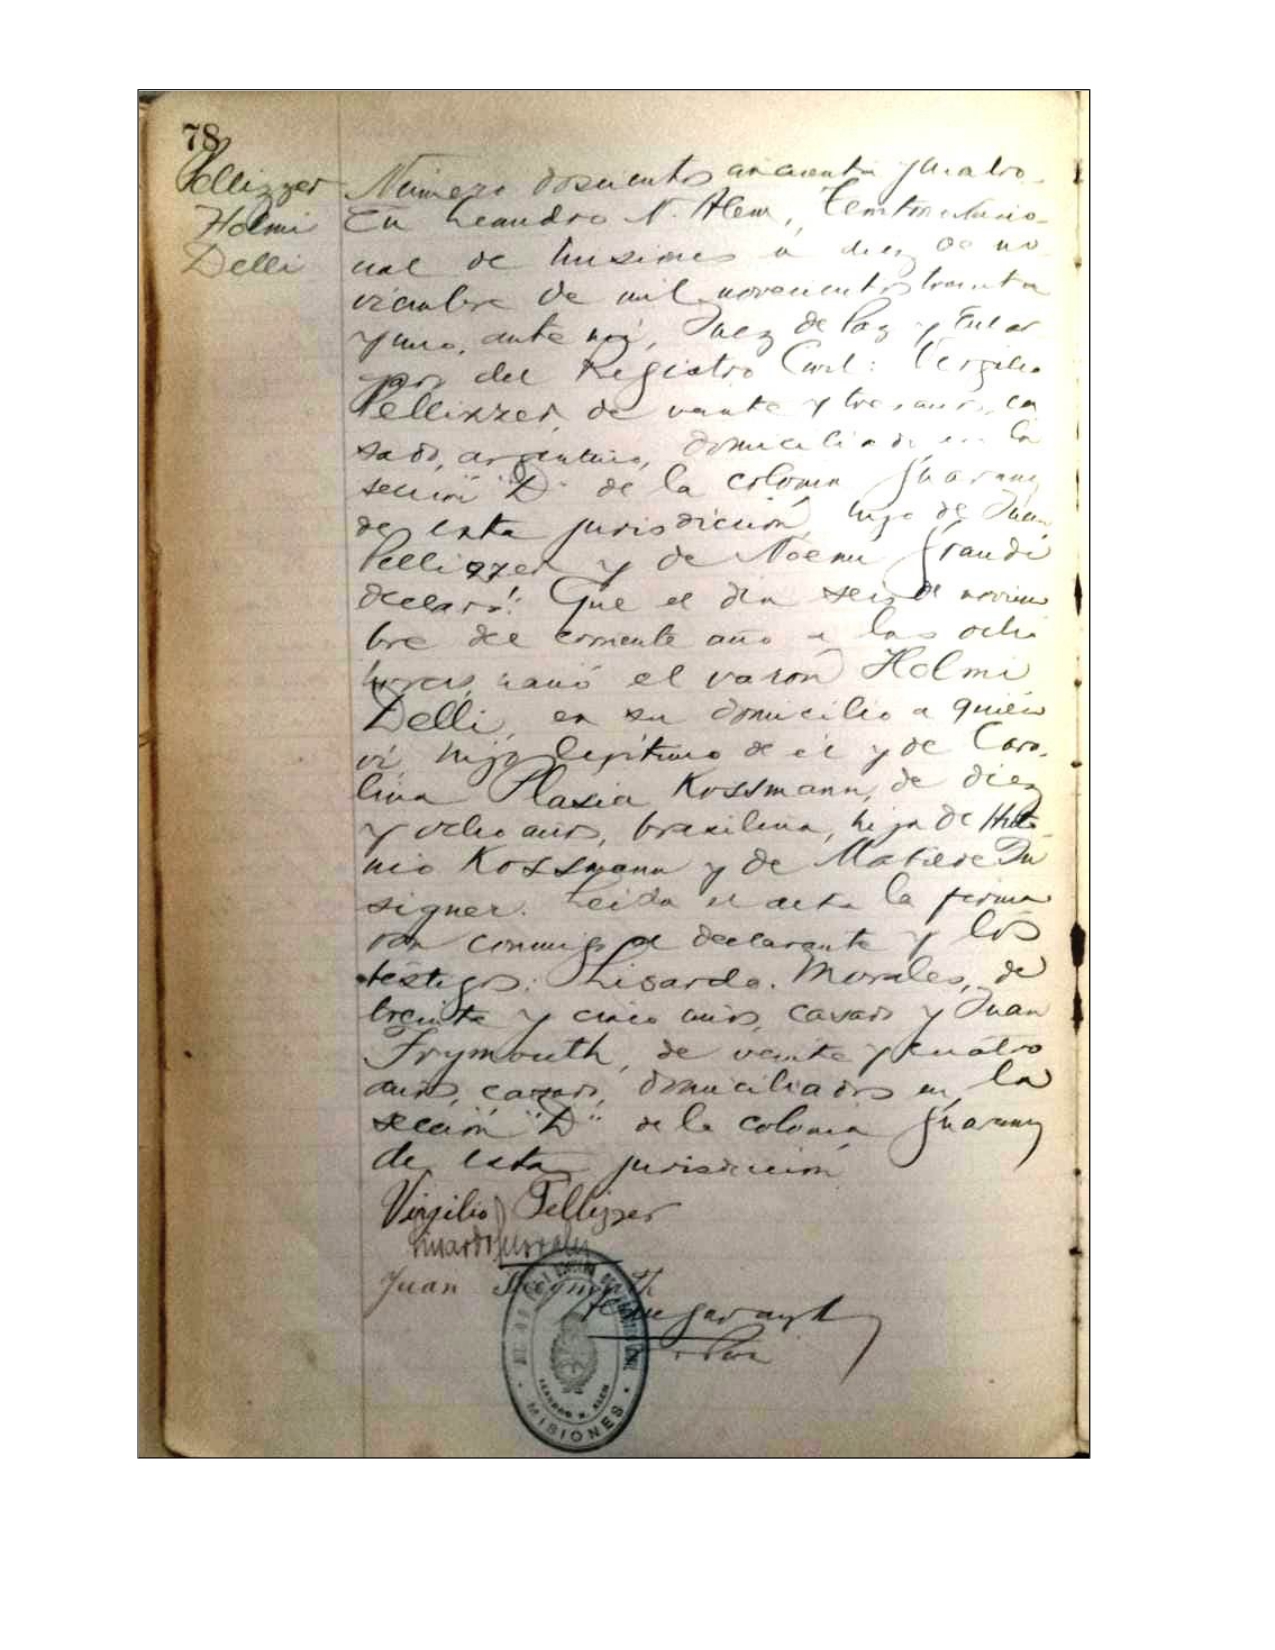 78
Pellizzer
Holmi
Delli
Número doscientos cincuenta y cuatro.
En Leandro N. Alem, Territorio nacio-
nal de Misiones a diez de no
viembre de mil novecientos treinta
y uno, ante mí, Juez de Paz y Encar
gado del Registro Civil: Virgilio
Pellizzer, de veinte y tres años, ca
sado, argentino, domiciliado en la
sección "D" de la colonia Guarany
de esta jurisdicción, hijo de Juan
Pellizzer y de Noemi Grandi
declaró: Que el día seis de noviem
bre del corriente año a las ocho
horas, nació el varón Holmi
Delli, en su domicilio a quién
ví hijo legítimo de él y de Caro-
lina Plasia Kossmann, de diez
y ocho años, brasilina, hija de
nio Kossmann y de Matilde In
signer. Leida el acta la firma
ron conmigo el declarante y los
testigos: Lisardo Morales, de
treinta y cinco años, casado y Juan
Frymouth, de veinte y cuatro
años, casado, domiciliados en la
sección "D" de la colonia Guarany
de esta jurisdicción
Virgilio Pellizzer
Juan
LEANDRO N. ALEM
MISIONES